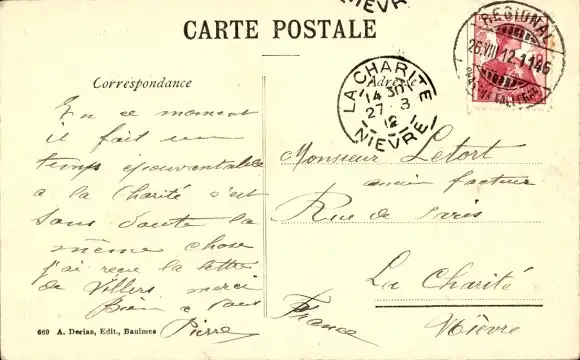 NIEVRE
CARTE POSTALE
REGIONAL
26.VIII.12.11 46
Correspondance
Adresse
LA CHARITE
14 30
27 - 8
12
NIEVRE
En ce moment
il fait un
temps épouvantable
a la Charité c'est
sans doute la
même chose
j'ai reçu la lettre
de Villers merci
Bien a vous
Pierre
Monsieur Letort
ancien facteur
Rue de Paris
La Charité
Nièvre
France
669 A. Deriaz, Edit., Baulmes